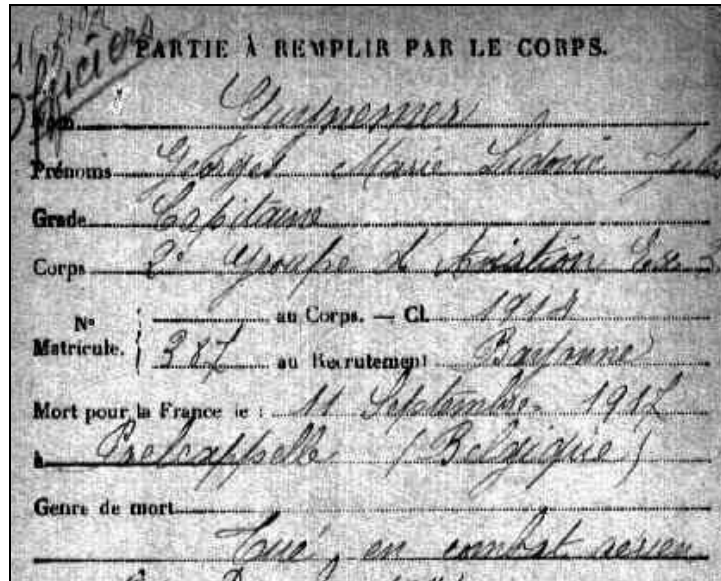 Officiers
PARTIE À REMPLIR PAR LE CORPS.
Nom Guynemer
Prénoms Georges Marie Ludovic Jules
Grade Capitaine
Corps 2e Groupe d'Aviation
No Matricule. { au Corps. — Cl. 1914
387 au Recrutement Bayonne
Mort pour la France le : 11 Septembre 1917
à Poelcappelle (Belgique)
Genre de mort
Tué en combat aérien